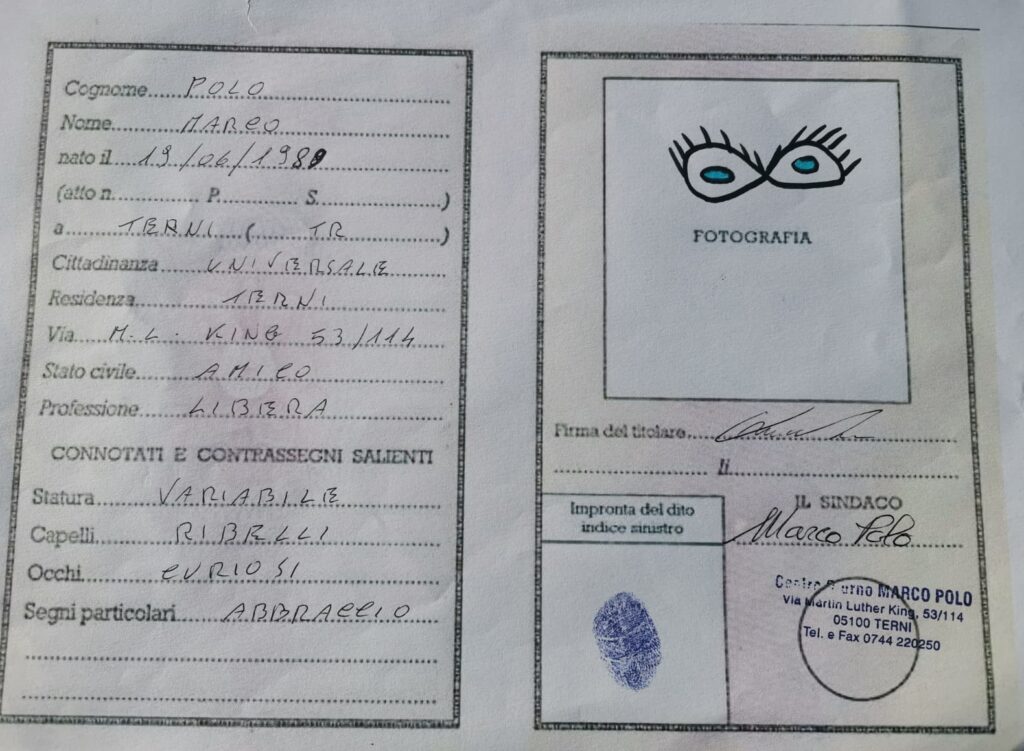 Cognome POLO
Nome MARCO
nato il 19/06/1980
(atto n. P. S. )
a TERNI ( TR )
Cittadinanza UNIVERSALE
Residenza TERNI
Via M.L. KING 53/114
Stato civile AMICO
Professione LIBERA
CONNOTATI E CONTRASSEGNI SALIENTI
Statura VARIABILE
Capelli RIBELLI
Occhi CURIOSI
Segni particolari ABBRACCIO
FOTOGRAFIA
Firma del titolare
li
Impronta del dito
indice sinistro
IL SINDACO
Marco Polo
Centro MARCO POLO
Via Martin Luther King, 53/114
05100 TERNI
Tel. e Fax 0744 220250